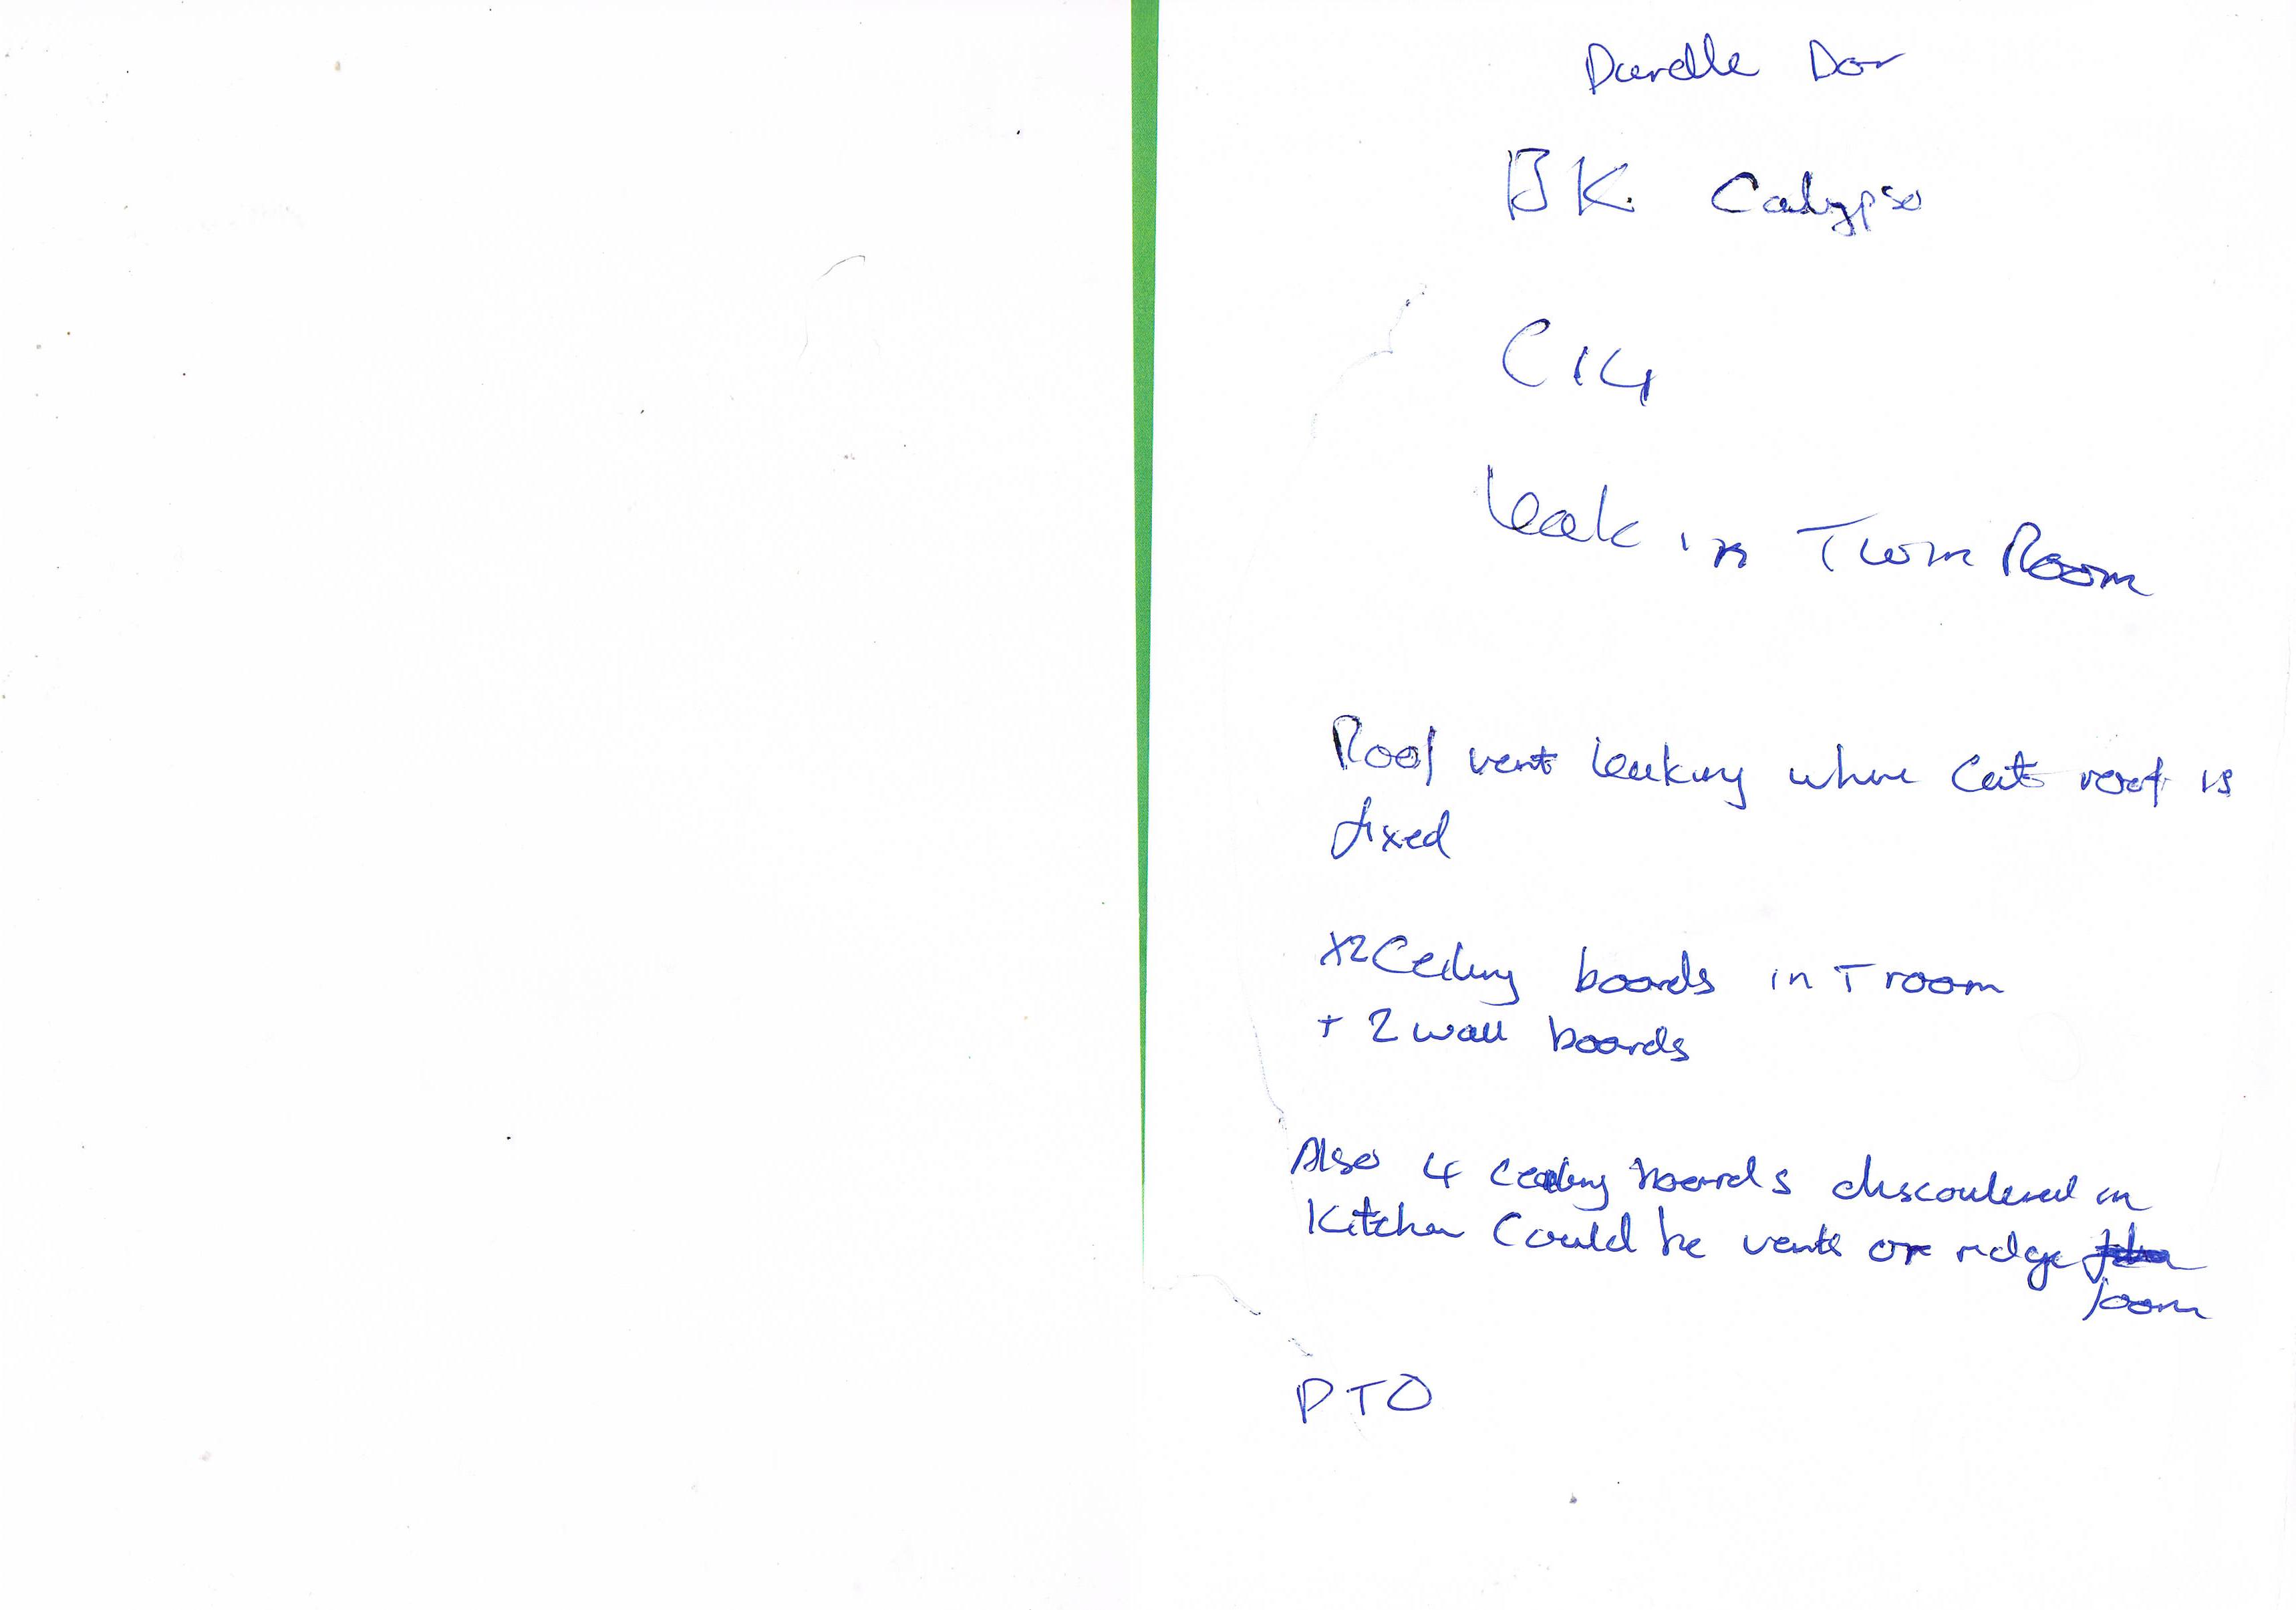 Durdle Dor
BK. Calypso
C14
Leak in Twin Room
Roof vent leaking where Cats roof is
fixed
X2 Ceiling boards in T room
+ 2 wall boards
Also 4 Ceiling boards discoulered in
Kitchen Could be vents or ridge
foam
PTO